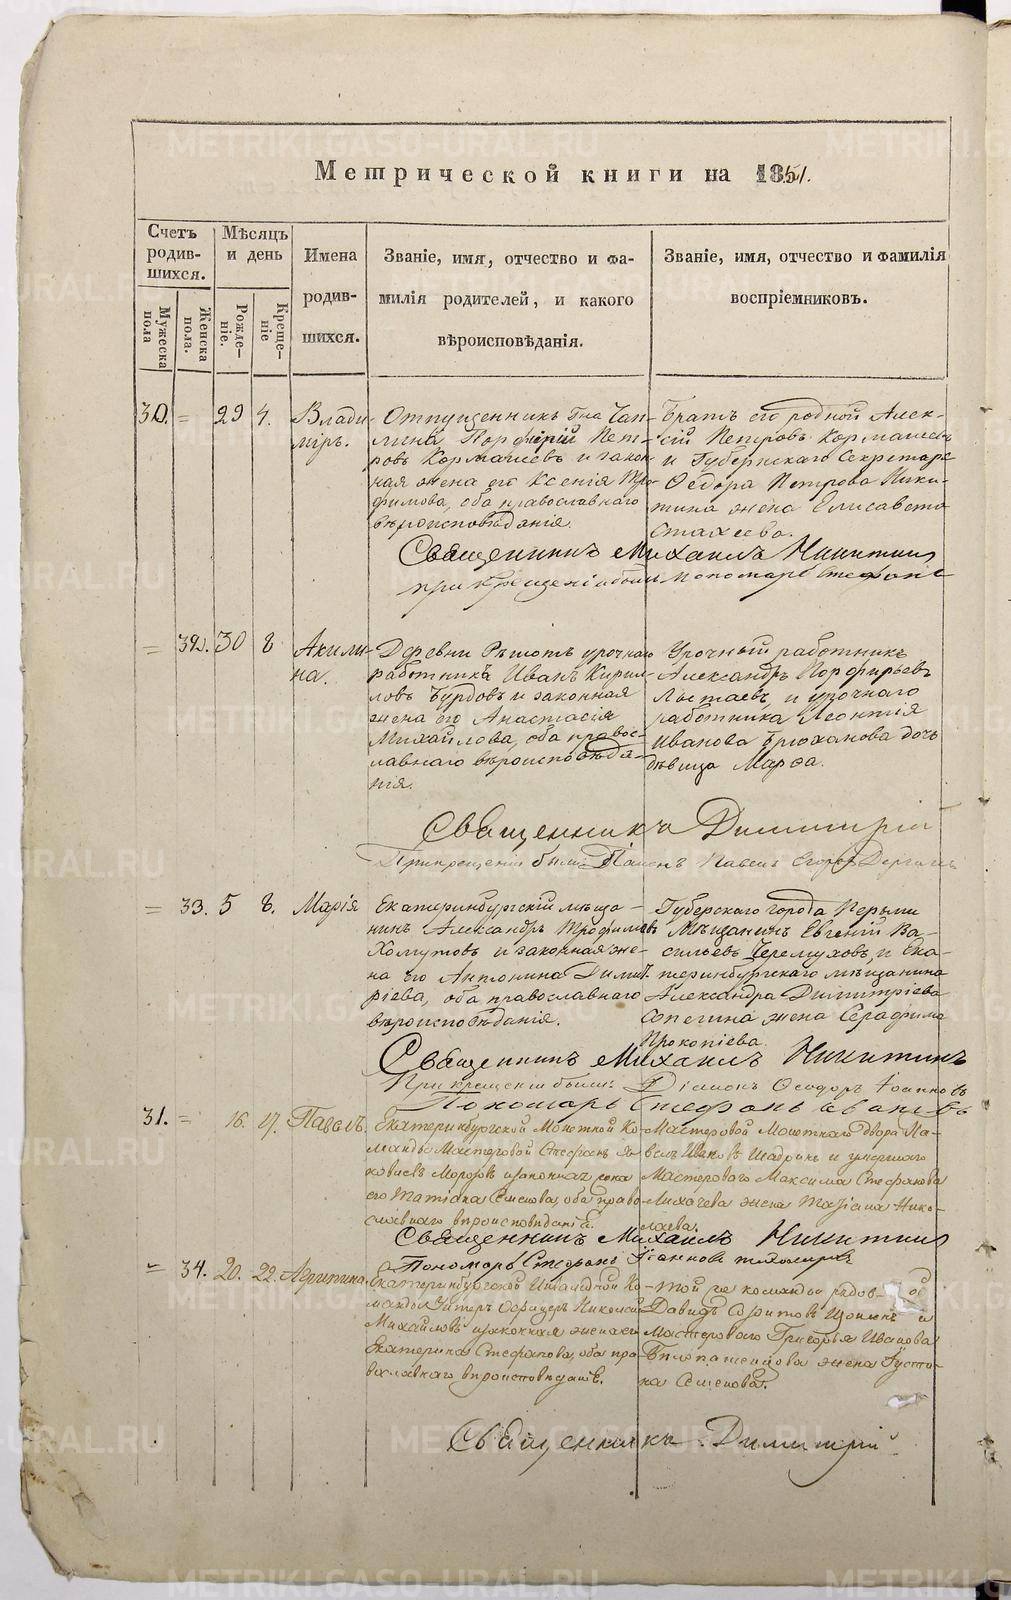 Метрической книги на 1851.
Счетъ родив-шихся.
Мужеска пола
Женска пола.
Мѣсяцъ и день
Рожде-ніе.
Креще-ніе
Имена родив-шихся.
Званіе, имя, отчество и фа-
милія родителей, и какого
вѣроисповѣданія.
Званіе, имя, отчество и фамилія
воспріемниковъ.
30. = 29 4. Влади-
міръ.
Отпущенникъ Гна Чап-
лина Порфирій Пет-
ровъ Кормашевъ и закон-
ная жена его Ксенія Тро-
фимова, оба православнаго
вѣроисповѣданія.
Братъ его родной Алек-
сій Петровъ Кормашевъ
и Губернскаго Секретаря
Ѳедора Петрова Ники-
тина жена Елисавета
Стахеева.
Священникъ Михаилъ Никитин
при крещеніи были пономарь Стефанъ
= 32. 30 8 Акили-
на.
Деревни Рѣшотъ урочнаго
работника Иванъ Кирил-
ловъ Бурдовъ и законная
жена его Анастасія
Михайлова, оба право-
славнаго вѣроисповѣда-
нія.
Урочный работникъ
Александръ Порфирьевъ
и урочнаго
работника Леонтія
Иванова Брюханова дочь
дѣвица Марѳа.
Священникъ Димитрій
При крещеніи были: Павелъ Егоровъ
= 33. 5 8. Марія
Екатеринбургскій мѣща-
нинъ Александръ Трофимовъ
Хомутовъ и законная же-
на его Антонина Димит-
ріева, оба православнаго
вѣроисповѣданія.
Губерскаго города Перьми
мѣщанинъ Евгеній Ва-
сильевъ Черемуховъ, и Ека-
теринбургскаго мѣщанина
Александра Димитріева
Сапегина жена Серафима
Прокопіева.
Священникъ Михаилъ Никитинъ
При крещеніи были: Діаконъ Ѳеодоръ Іоанновъ
Пономарь Стефанъ Ивановъ
31. = 16. 17. Павелъ.
Екатеринбургской Монетной Ко-
манды Мастеровой Стефанъ Яко-
влевъ Моровъ и законная жена
его Татіана Семенова, оба право-
славнаго вѣроисповѣданія.
Мастеровой Монетнаго двора Па-
велъ Ивановъ Шадринъ и умершаго
Мастероваго Максима Стефанова
Лихачева жена Татіана Нико-
лаева.
Священникъ Михаилъ Никитин
Пономарь Стефанъ Іоанновъ Тихомировъ
= 34. 20. 22. Агрипина
Екатеринбургской Инвалидной Ко-
манды Унтеръ Офицеръ Николай
Михайловъ и законная жена его
Екатерина Стефанова, оба пра-
вославнаго вѣроисповѣданія.
той же команды рядовой
Давидъ и
Мастероваго Григорья Иванова
жена Усти-
на Семенова.
Священникъ Димитрій